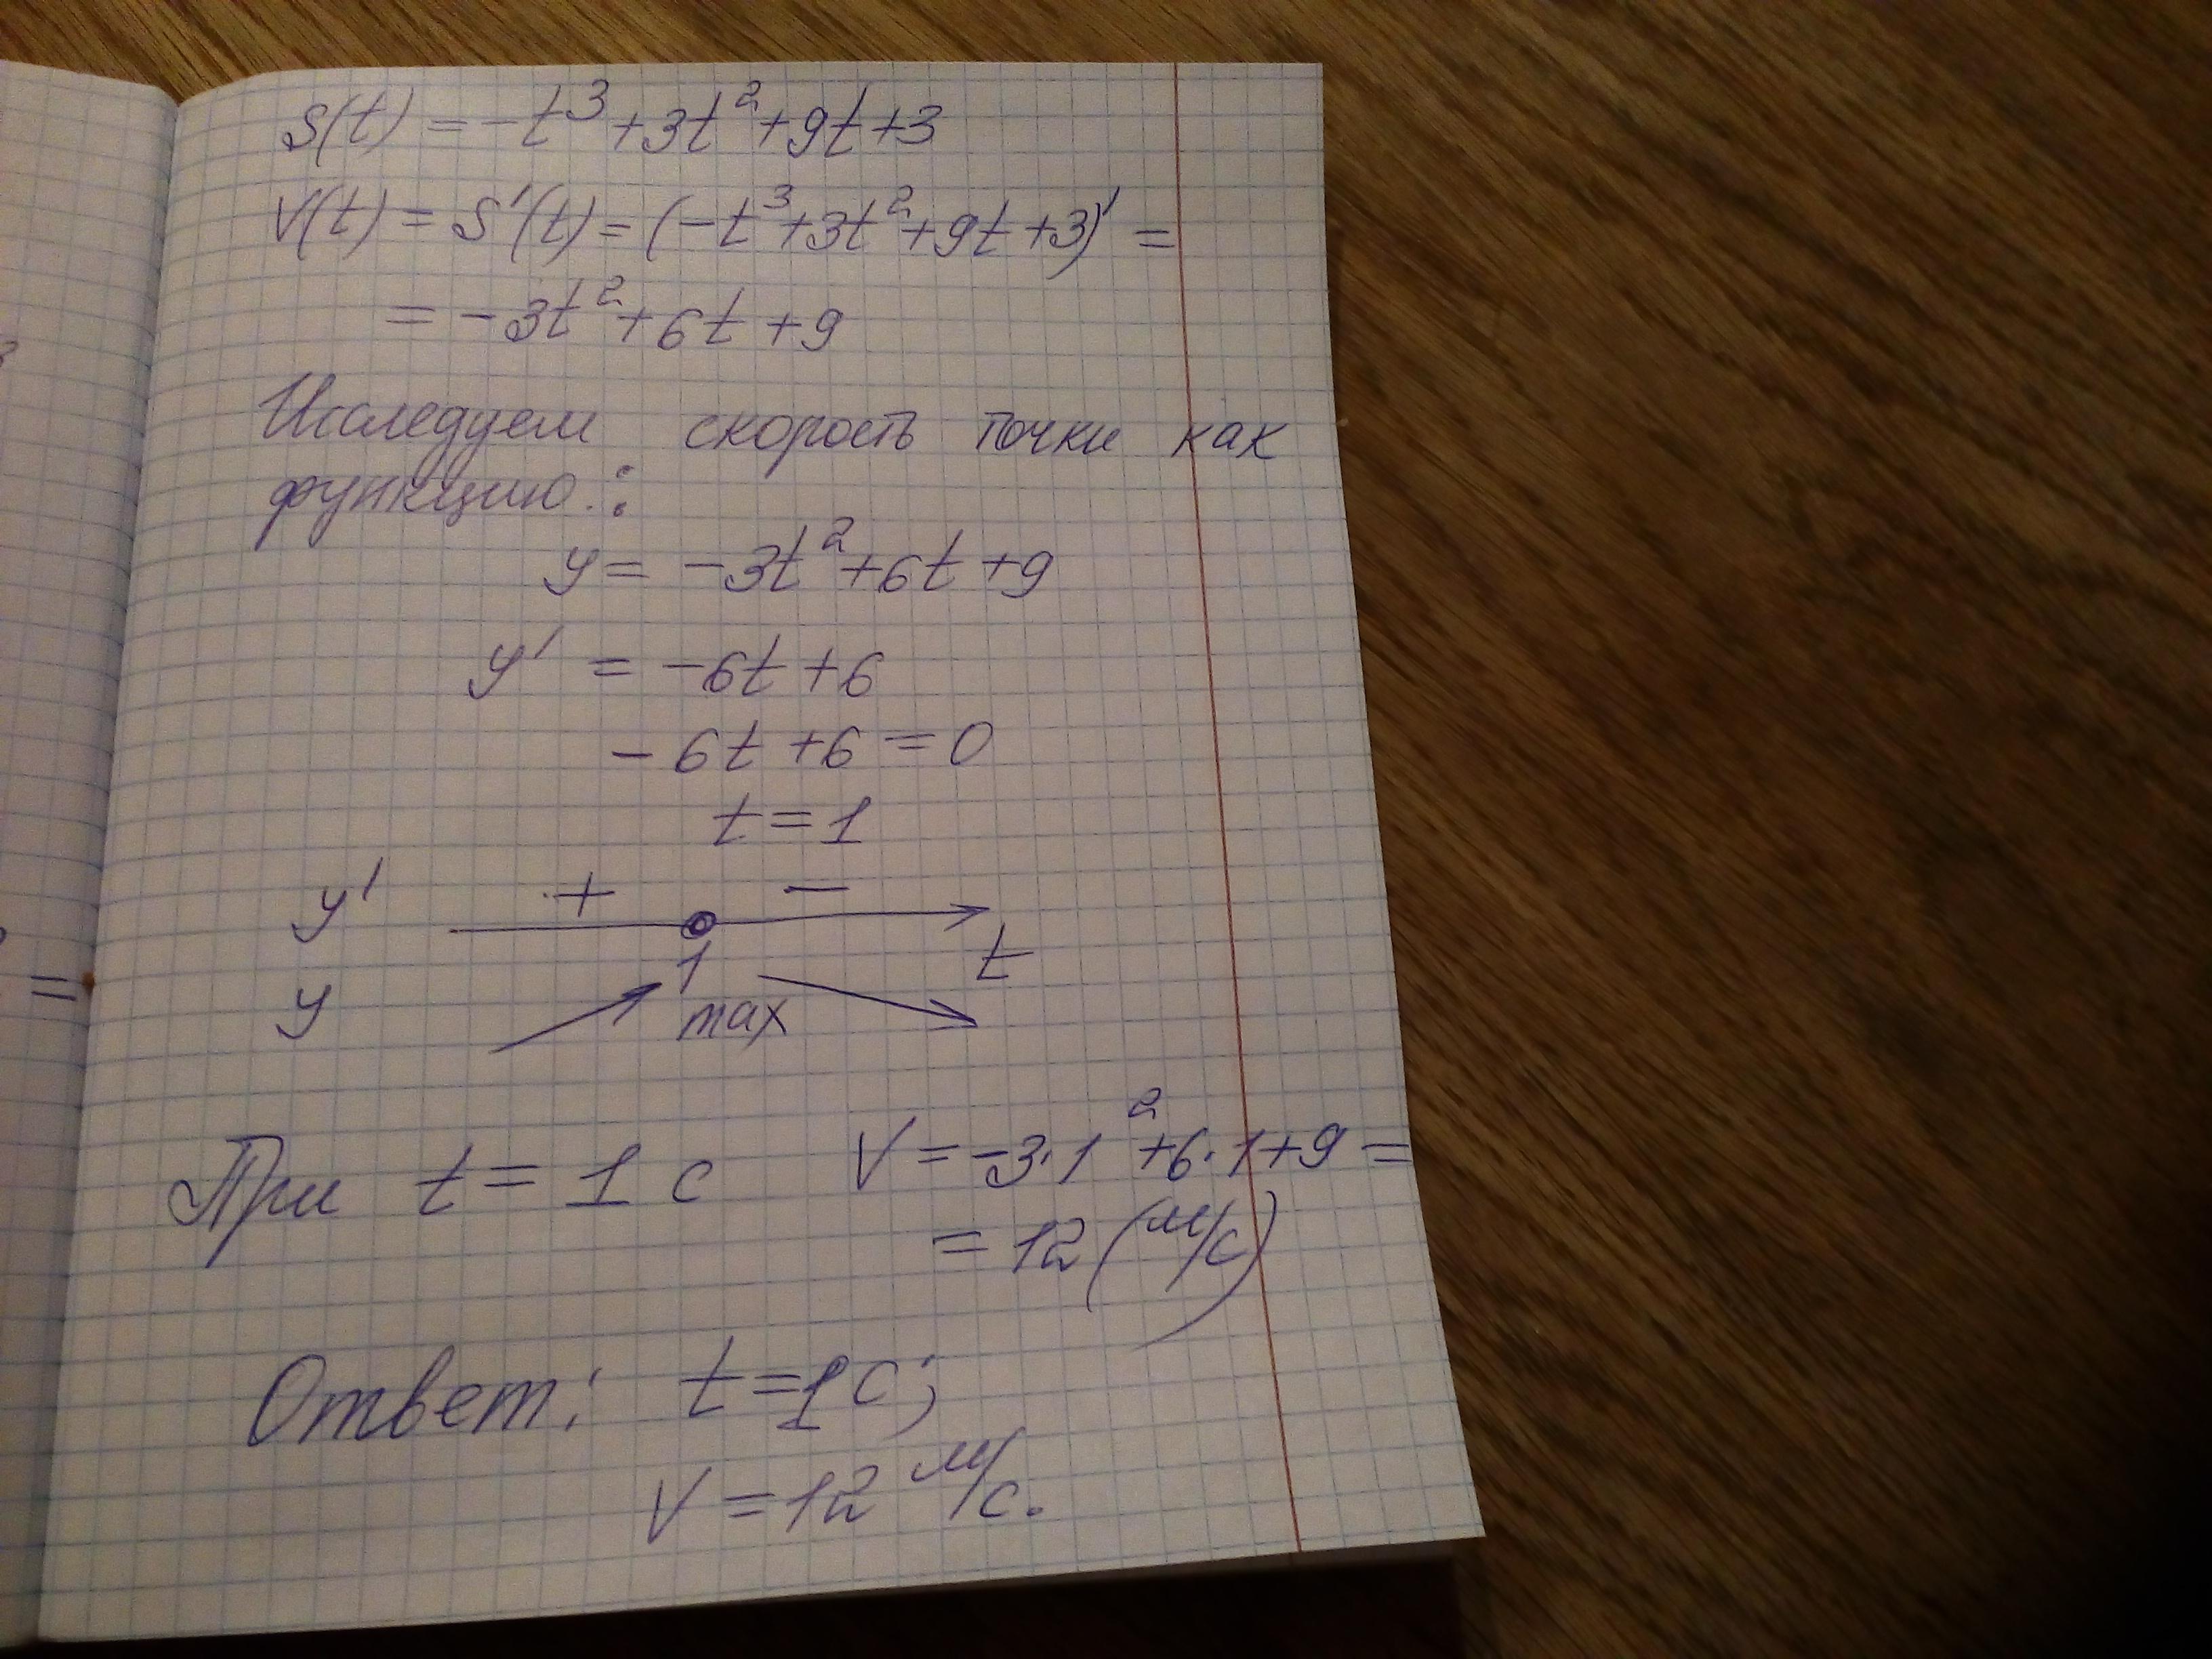 S(t) = -t³+3t²+9t+3
V(t) = S'(t) = (-t³+3t²+9t+3)' =
= -3t²+6t+9
Исследуем скорость точки как
функцию:
y = -3t²+6t+9
y' = -6t+6
-6t+6=0
t=1
y' + -
1 t
y max
При t = 1 с V = -3·1²+6·1+9 =
= 12 (м/с)
Ответ: t=1с;
V = 12 м/с.